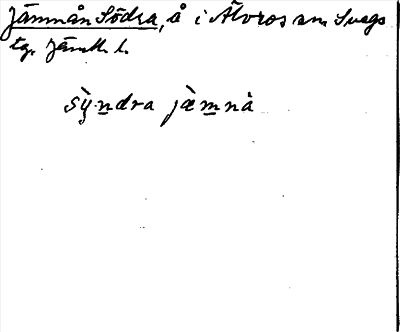 Jämnån Södra, å i Älvros sn. Svegs
tg. Jämtl. l.
sỳndra jæ̀mnå